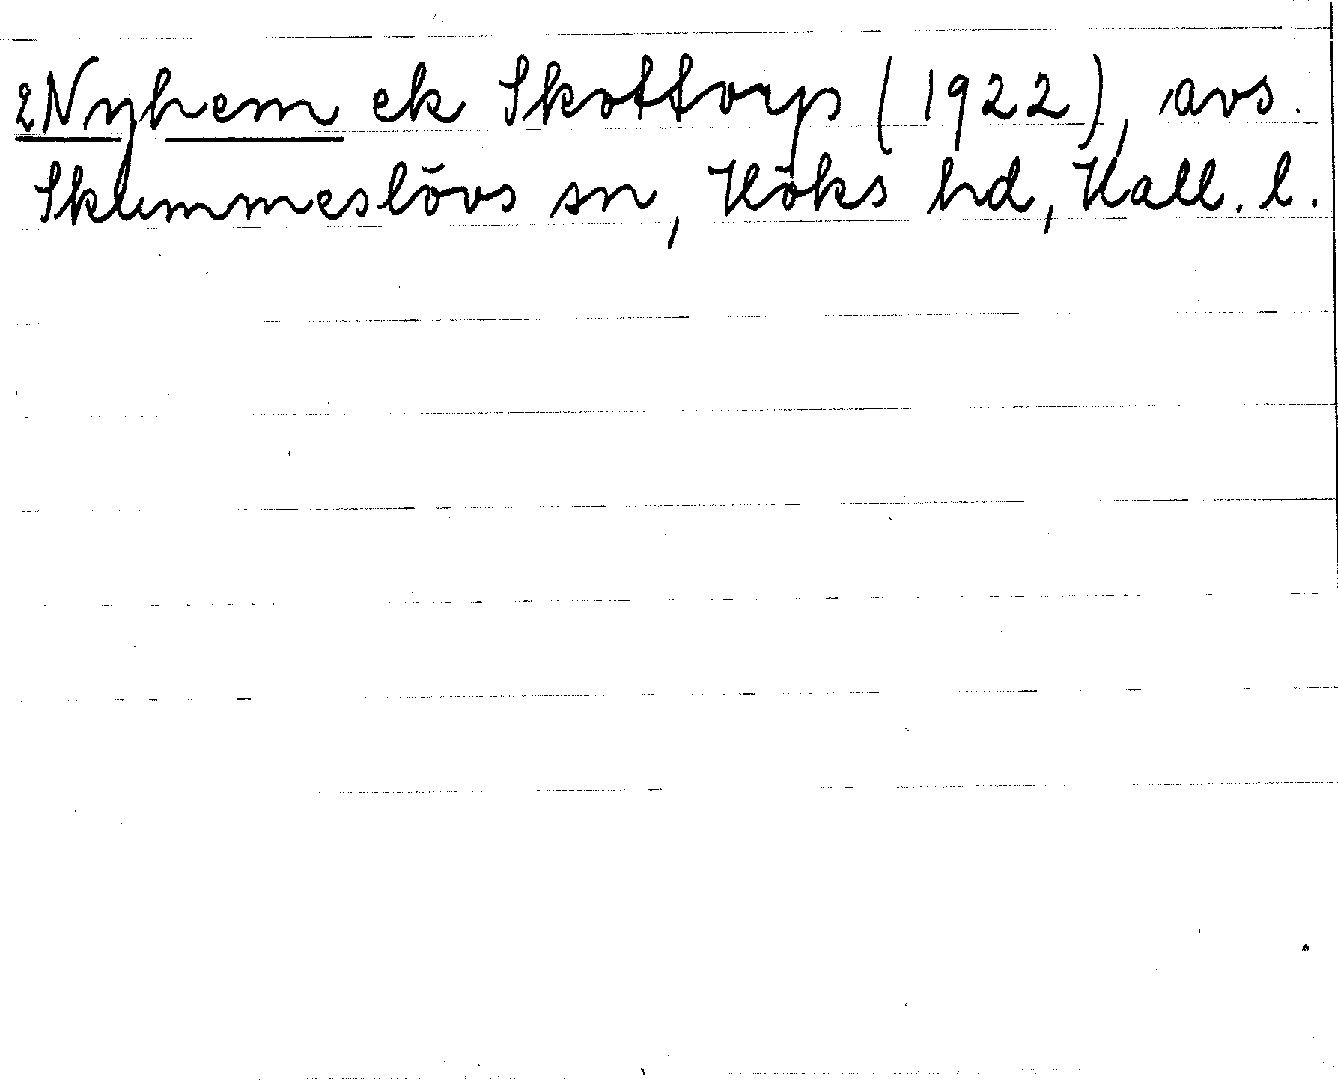 2Nyhem ek Skottorp (1922), avs.
Skummeslövs sn, Höks hd, Hall. l.